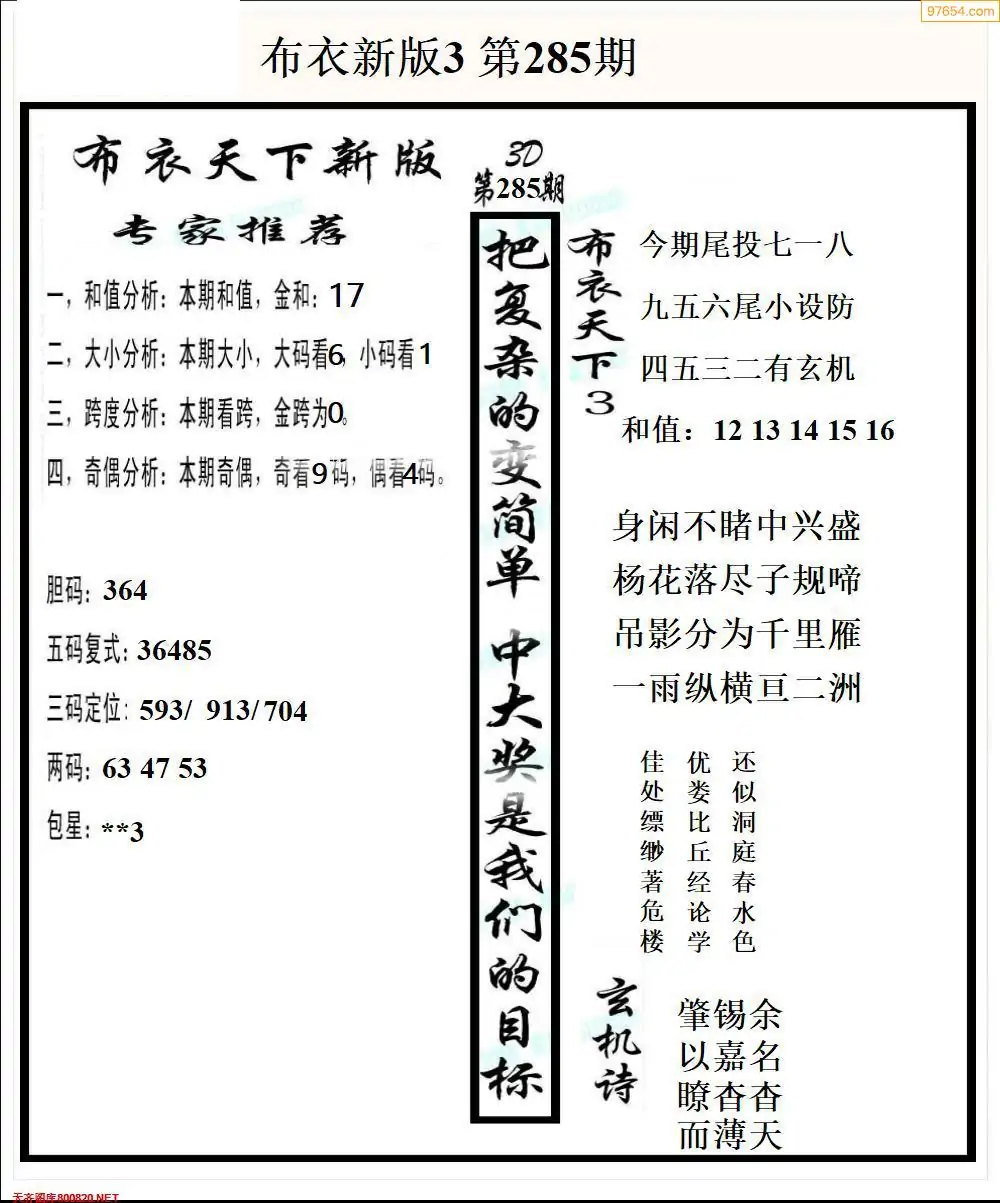 97654.com
布衣新版3 第285期
布衣天下新版
专家推荐
一，和值分析：本期和值，金和：17
二，大小分析：本期大小，大码看6，小码看1
三，跨度分析：本期看跨，金跨为0。
四，奇偶分析：本期奇偶，奇看9码，偶看4码。
胆码：364
五码复式：36485
三码定位：593/ 913/ 704
两码：63 47 53
包星：**3
3D
第285期
把复杂的变简单 中大奖是我们的目标
布衣天下3
今期尾投七一八
九五六尾小设防
四五三二有玄机
和值：12 13 14 15 16
身闲不睹中兴盛
杨花落尽子规啼
吊影分为千里雁
一雨纵横亘二洲
还似洞庭春水色
优娄比丘经论学
佳处缥缈著危楼
玄机诗
肇锡余
以嘉名
瞭杳杳
而薄天
天齐图库800820.NET